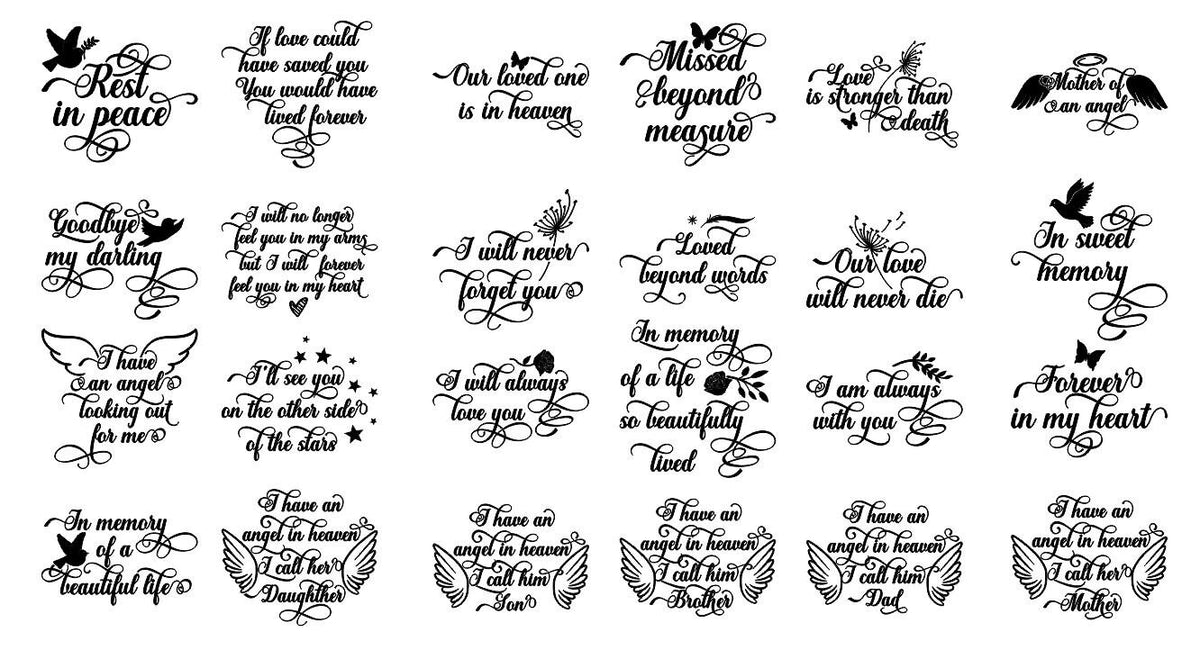 Rest
in peace
If love could
have saved you
You would have
lived forever
Our loved one
is in heaven
Missed
beyond
measure
Love
is stronger than
death
Mother of
an angel
Goodbye
my darling
I will no longer
feel you in my arms
but I will forever
feel you in my heart
I will never
forget you
Loved
beyond words
Our love
will never die
In sweet
memory
I have
an angel
looking out
for me
I'll see you
on the other side
of the stars
I will always
love you
In memory
of a life
so beautifully
lived
I am always
with you
Forever
in my heart
In memory
of a
beautiful life
I have an
angel in heaven
I call her
Daughther
I have an
angel in heaven
I call him
Son
I have an
angel in heaven
I call him
Brother
I have an
angel in heaven
I call him
Dad
I have an
angel in heaven
I call her
Mother